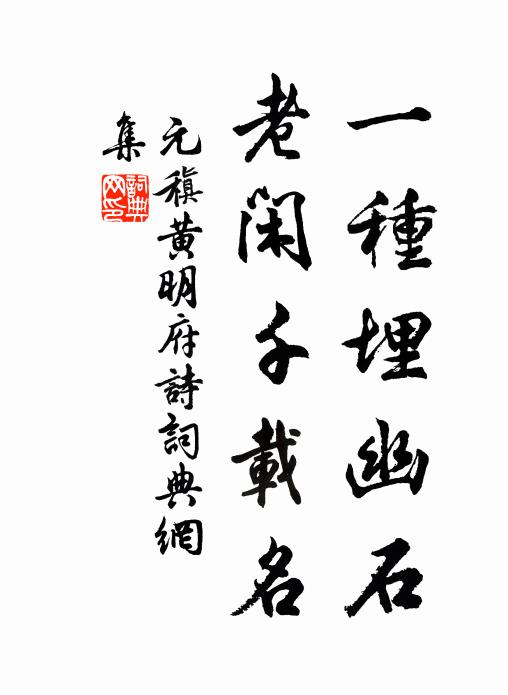 一種埋幽石
老閑千載名
元稹黃明府詩詞典網
集
詞典
网印